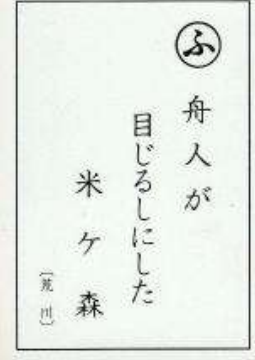 ふ 舟人が
目じるしにした
米ケ森
〔荒川〕